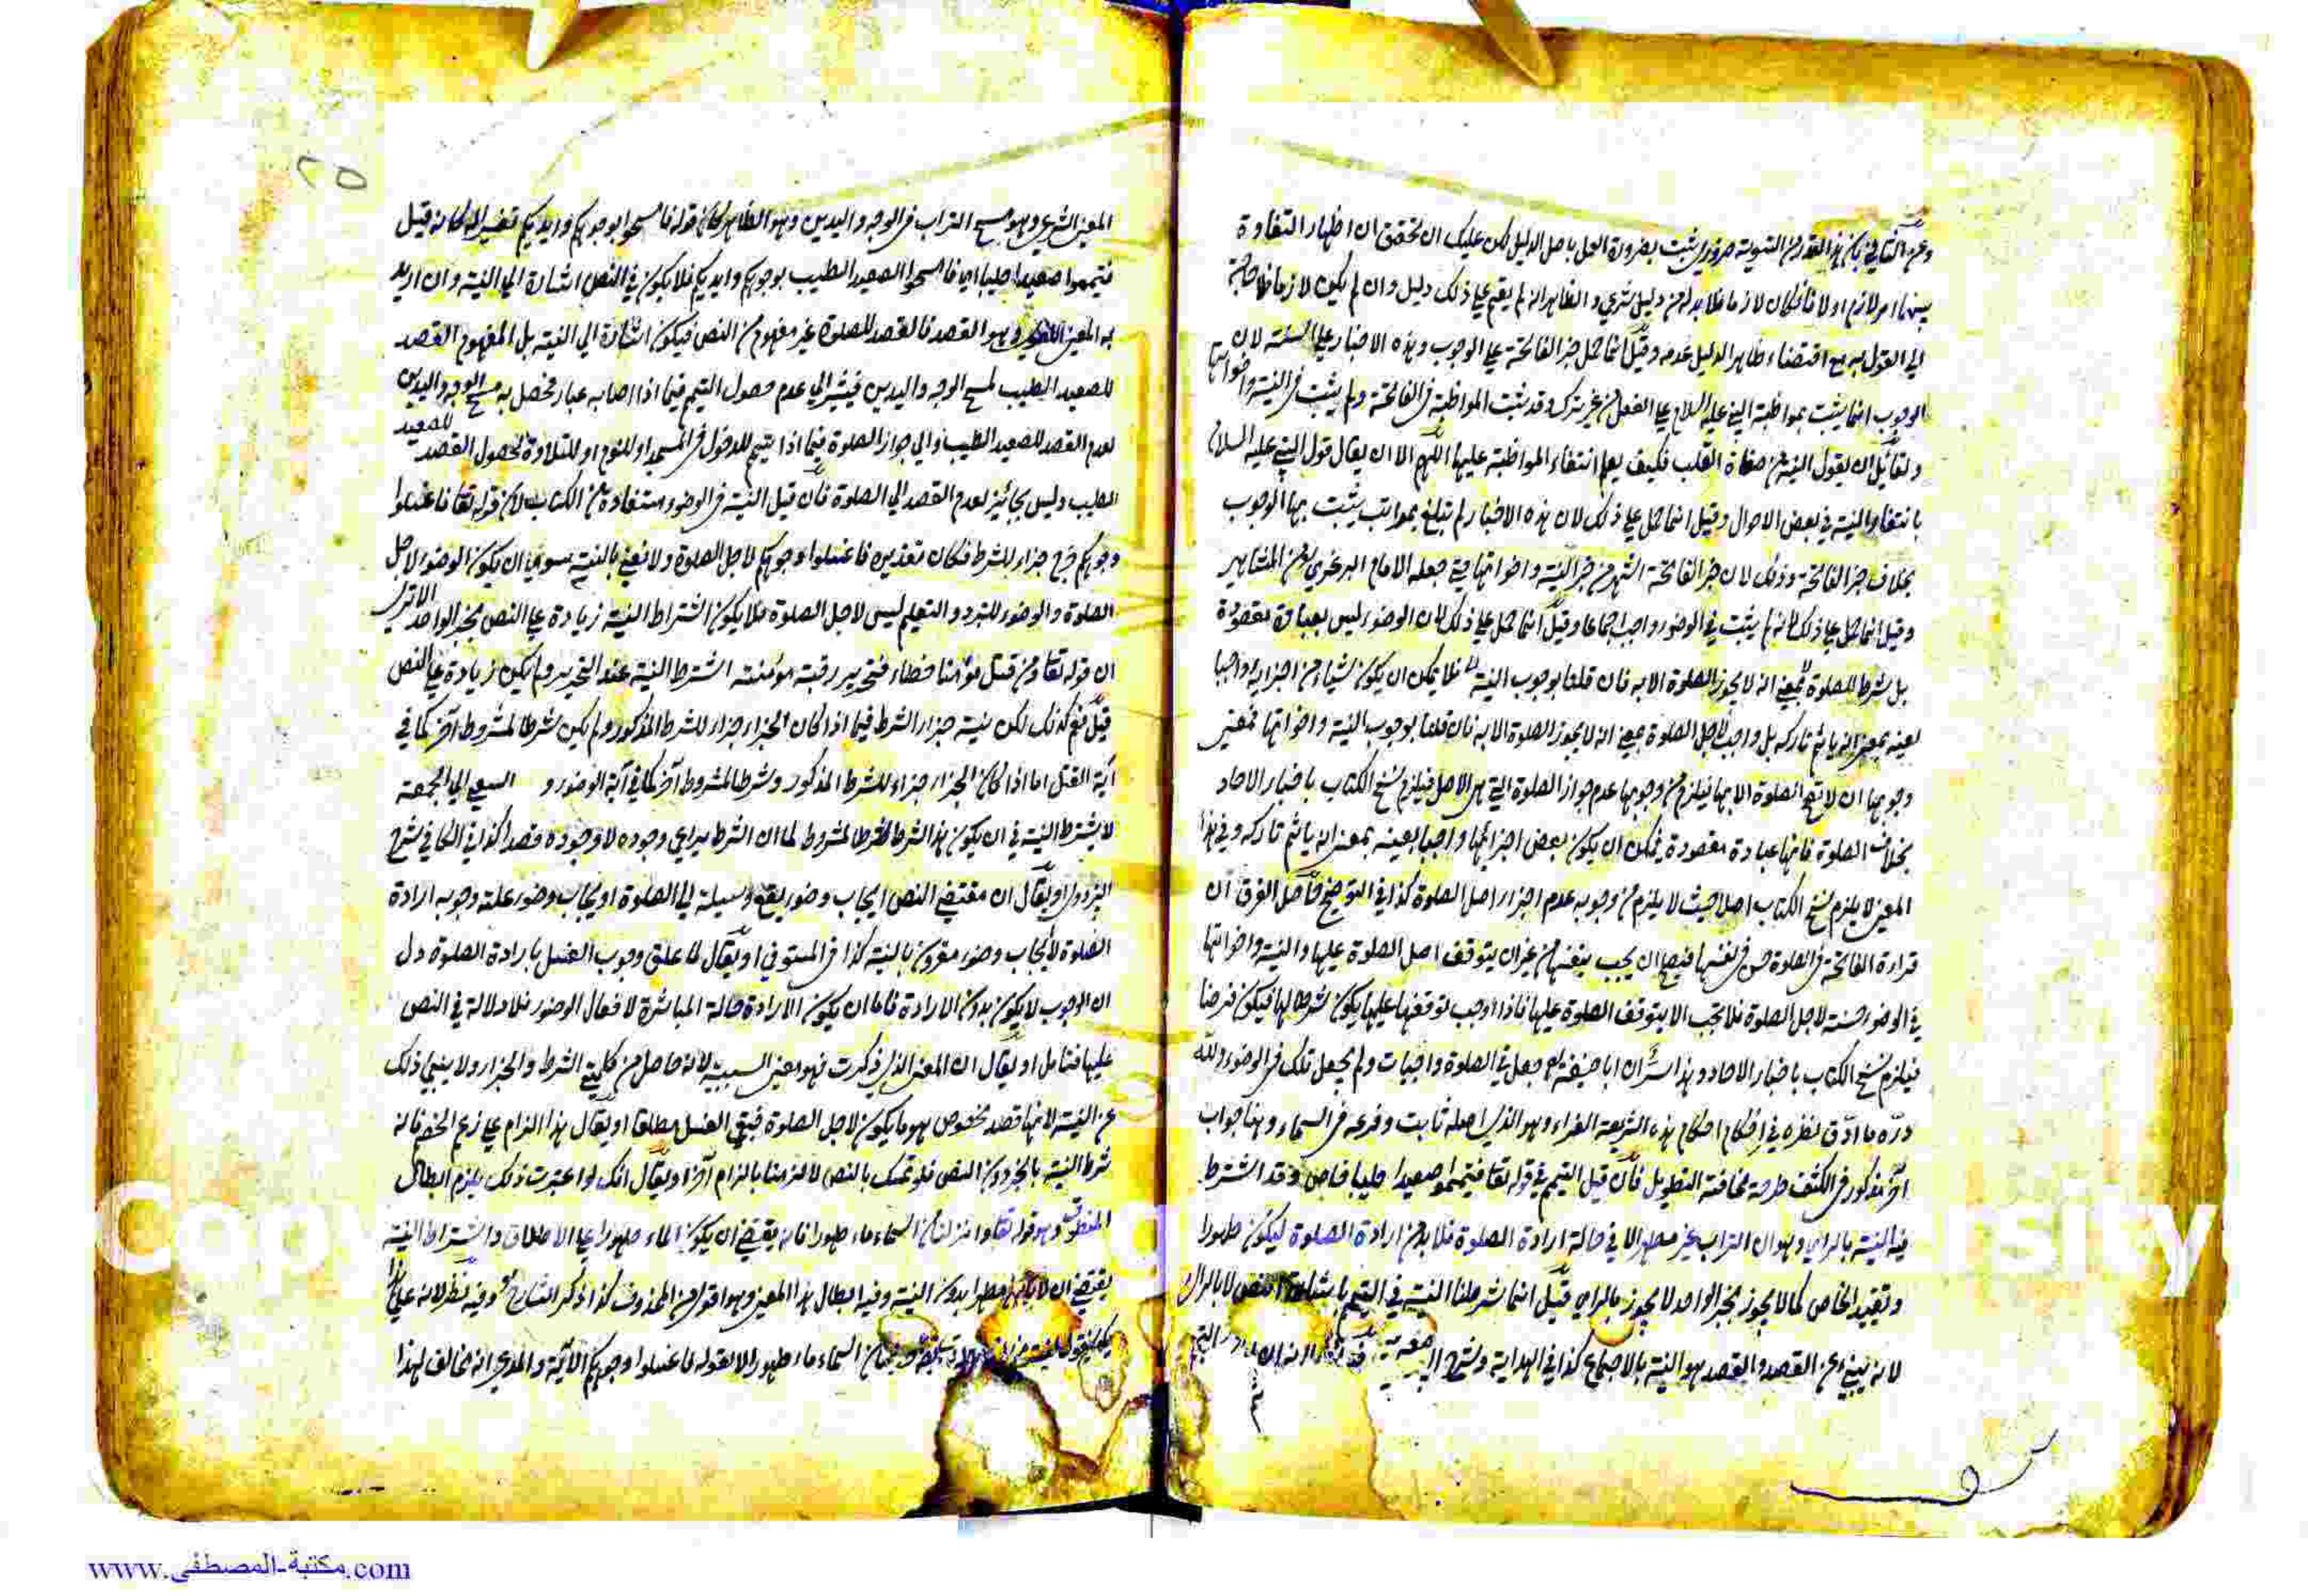 بينهما امر لازم اولا فان كان لازما فلا بد له من دليل شرعي والظاهر انه لم يقم على ذلك دليل وان لم يكن لازما فلا حاجة
الى القول به مع اقتضاء ظاهر الدليل عدمه وقيل انما حمل خبر الفاتحة على الوجوب وهذه الاخبار على السنة لان
الوجوب انما يثبت بمواظبة النبي عليه السلام على الفعل من غير ترك وقد ثبت المواظبة في الفاتحة ولم يثبت في النية واخواتها
ولقائل ان يقول النية من صفات القلب فكيف يعلم انتفاء المواظبة عليها اللهم الا ان يقال قول النبي عليه السلام
بانتفاء النية في بعض الاحوال وقيل انما حمل على ذلك لان هذه الاخبار لم تبلغ بمراتب يثبت بها الوجوب
بخلاف خبر الفاتحة وذلك لان خبر الفاتحة اشهر من خبر النية واخواتها حتى جعله الامام البرغري من المشاهير
وقيل انما حمل على ذلك لانه لم يثبت في الوضوء واجب اجماعا وقيل انما حمل على ذلك لان الوضوء ليس بعبادة مقصودة
بل شرط للصلوة بمعنى انه لا يجوز الصلوة الا به فان قلنا بوجوب النية فلا يمكن ان يكون شيئا من اجزائه واجبا
لعينه بمعنى انه ياثم تاركه بل واجب لاجل الصلوة بمعنى انه لا يجوز الصلوة الا به فان قلنا بوجوب النية واخواتها فمعنى
وجوبها ان لا تصح الصلوة الا بها فيلزم من وجوبها عدم جواز الصلوة التي هي الاصل فيلزم نسخ الكتاب باخبار الاحاد
بخلاف الصلوة فانها عبادة مقصودة يمكن ان يكون بعض اجزائها واجبا بعينه بمعنى انه ياثم تاركه وفي هذا
المعنى لا يلزم نسخ الكتاب اصلا حيث لا يلزم من وجوبه عدم اجزاء اصل الصلوة كذا في التوضيح حاصل الفرق ان
قراءة الفاتحة في الصلوة حسن في نفسها فيصح ان يجب بنفسها من غير ان يتوقف اصل الصلوة عليها والنية واخواتها
في الوضوء حسنة لاجل الصلوة فلا تجب الا بتوقف الصلوة عليها فاذا اوجب توقفها عليها يكون شرطا لها فيكون فرضا
فيلزم نسخ الكتاب باخبار الاحاد وهذا سر ان ابا حنيفة جعل في الصلوة واجبات ولم يجعل تلك في الوضوء ولله
دره ما ادق نظره في احكام احكام هذه الشريعة الغراء وهو الذي اصله ثابت وفرعه في السماء وهنا جواب
اخر مذكور في الكشف طرحته مخافة التطويل فان قيل التيمم في قوله تعا فتيمموا صعيدا طيبا خاص وقد اشترط
فيه النية بالراي وهو ان التراب غير مطهر الا في حالة ارادة الصلوة فلا بد من ارادة الصلوة ليكون طهورا
وتقييد الخاص كما لا يجوز بخبر الواحد لا يجوز بالراي قيل انما شرطنا النية في التيمم باشارة النص لا بالراي
لانه ينبئ عن القصد والقصد هو النية بالاجماع كذا في الهداية وشرح
٢٥
المعنى الشرعي وهو مسح التراب في الوجه واليدين وهو الظاهر لان قوله فامسحوا بوجوهكم وايديكم تفسير له كانه قيل
فتيمموا صعيدا طيبا اي فامسحوا الصعيد الطيب بوجوهكم وايديكم فلا يكون في النص اشارة الى النية وان اريد
به المعنى اللغوي وهو القصد فالقصد للصلوة غير مفهوم من النص فيكون اشارة الى النية بل المفهوم القصد
للصعيد الطيب لمسح الوجه واليدين فيشير الى عدم حصول التيمم فيما اذا اصابه غبار فحصل به مسح الوجه واليدين
لعدم القصد للصعيد الطيب والى جواز الصلوة فيما اذا تيمم للدخول في المسجد او للنوم او للتلاوة لحصول القصد للصعيد
الطيب وليس بجائز لعدم القصد الى الصلوة فان قيل النية في الوضوء مستفادة من الكتاب لان قوله تعا فاغسلوا
وجوهكم خرج جزاء للشرط فكان تقديره فاغسلوا وجوهكم لاجل الصلوة ولا نعني بالنية سوى ان يكون الوضوء لاجل
الصلوة والوضوء للتبرد والتعليم ليس لاجل الصلوة فلا يكون اشتراط النية زيادة على النص بخبر الواحد الا ترى
ان قوله تعا ومن قتل مؤمنا خطاء فتحرير رقبة مؤمنة اشترط النية عند التحرير ولم يكن زيادة على النص
قيل نعم كذلك لكن نية جزاء الشرط فيما اذا كان الجزاء جزاء للشرط المذكور ولم يكن شرطا لمشروط آخر كما في
آية القتل اما اذا كان الجزاء جزاء للشرط المذكور وشرطا لمشروط آخر كما في آية الوضوء و السعي الى الجمعة
لا يشترط النية في ان يكون هذا الشرط شرطا لمشروط لما ان الشرط يراعى وجوده لا وجوده قصدا كذا في الكافي شرح
البزدوي او يقال ان مقتضى النص ايجاب وضوء يقع وسيلة الى الصلوة او يجاب وضوء علة وجوبه ارادة
الصلوة لا يجاب وضوء مقرون بالنية كذا في المستوفي او يقال لما علق وجوب الغسل بارادة الصلوة دل
ان الوجوب لا يكون بدون الارادة فاما ان يكون الارادة حالة المباشرة لافعال الوضوء فلا دلالة في النص
عليها فتامل او يقال ان المعنى الذي ذكرت فهو معنى السببية لانه حاصل من كلمتي الشرط والجزاء ولا ينبئ ذلك
عن النية لانها قصد مخصوص هو ما يكون لاجل الصلوة فبقي الغسل مطلقا او يقال هذا الزام على زعم الخصم فانه
شرط النية بالخبر دون النص فلو تمسك بالنص لالزمنا بالزام آخر او يقال انك لو اعتبرت ذلك يلزم ابطال
المنطوق وهو قوله تعا وانزلنا من السماء ماء طهورا فانه يقتضي ان يكون الماء طهورا على الاطلاق واشتراط النية
يقتضي ان لا يكون مطهرا بدون النية وفيه ابطال هذا المعنى وهو اقوى من المحذوف كذا ذكر الشارح وفيه نظر لانه على هذا
السماء ماء طهورا لا بقوله فاغسلوا وجوهكم الآية والمدعي انه مخالف لهذا
www.مكتبة-المصطفى.com